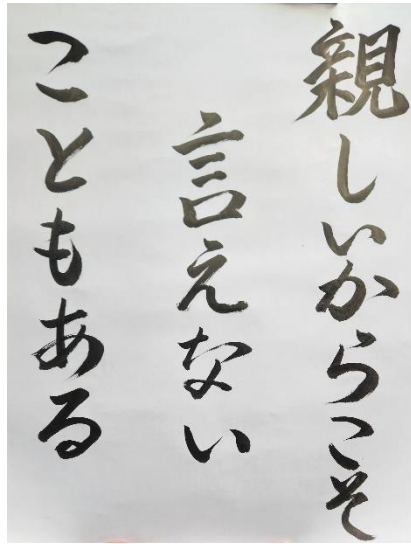 親しいからこそ
言えない
こともある